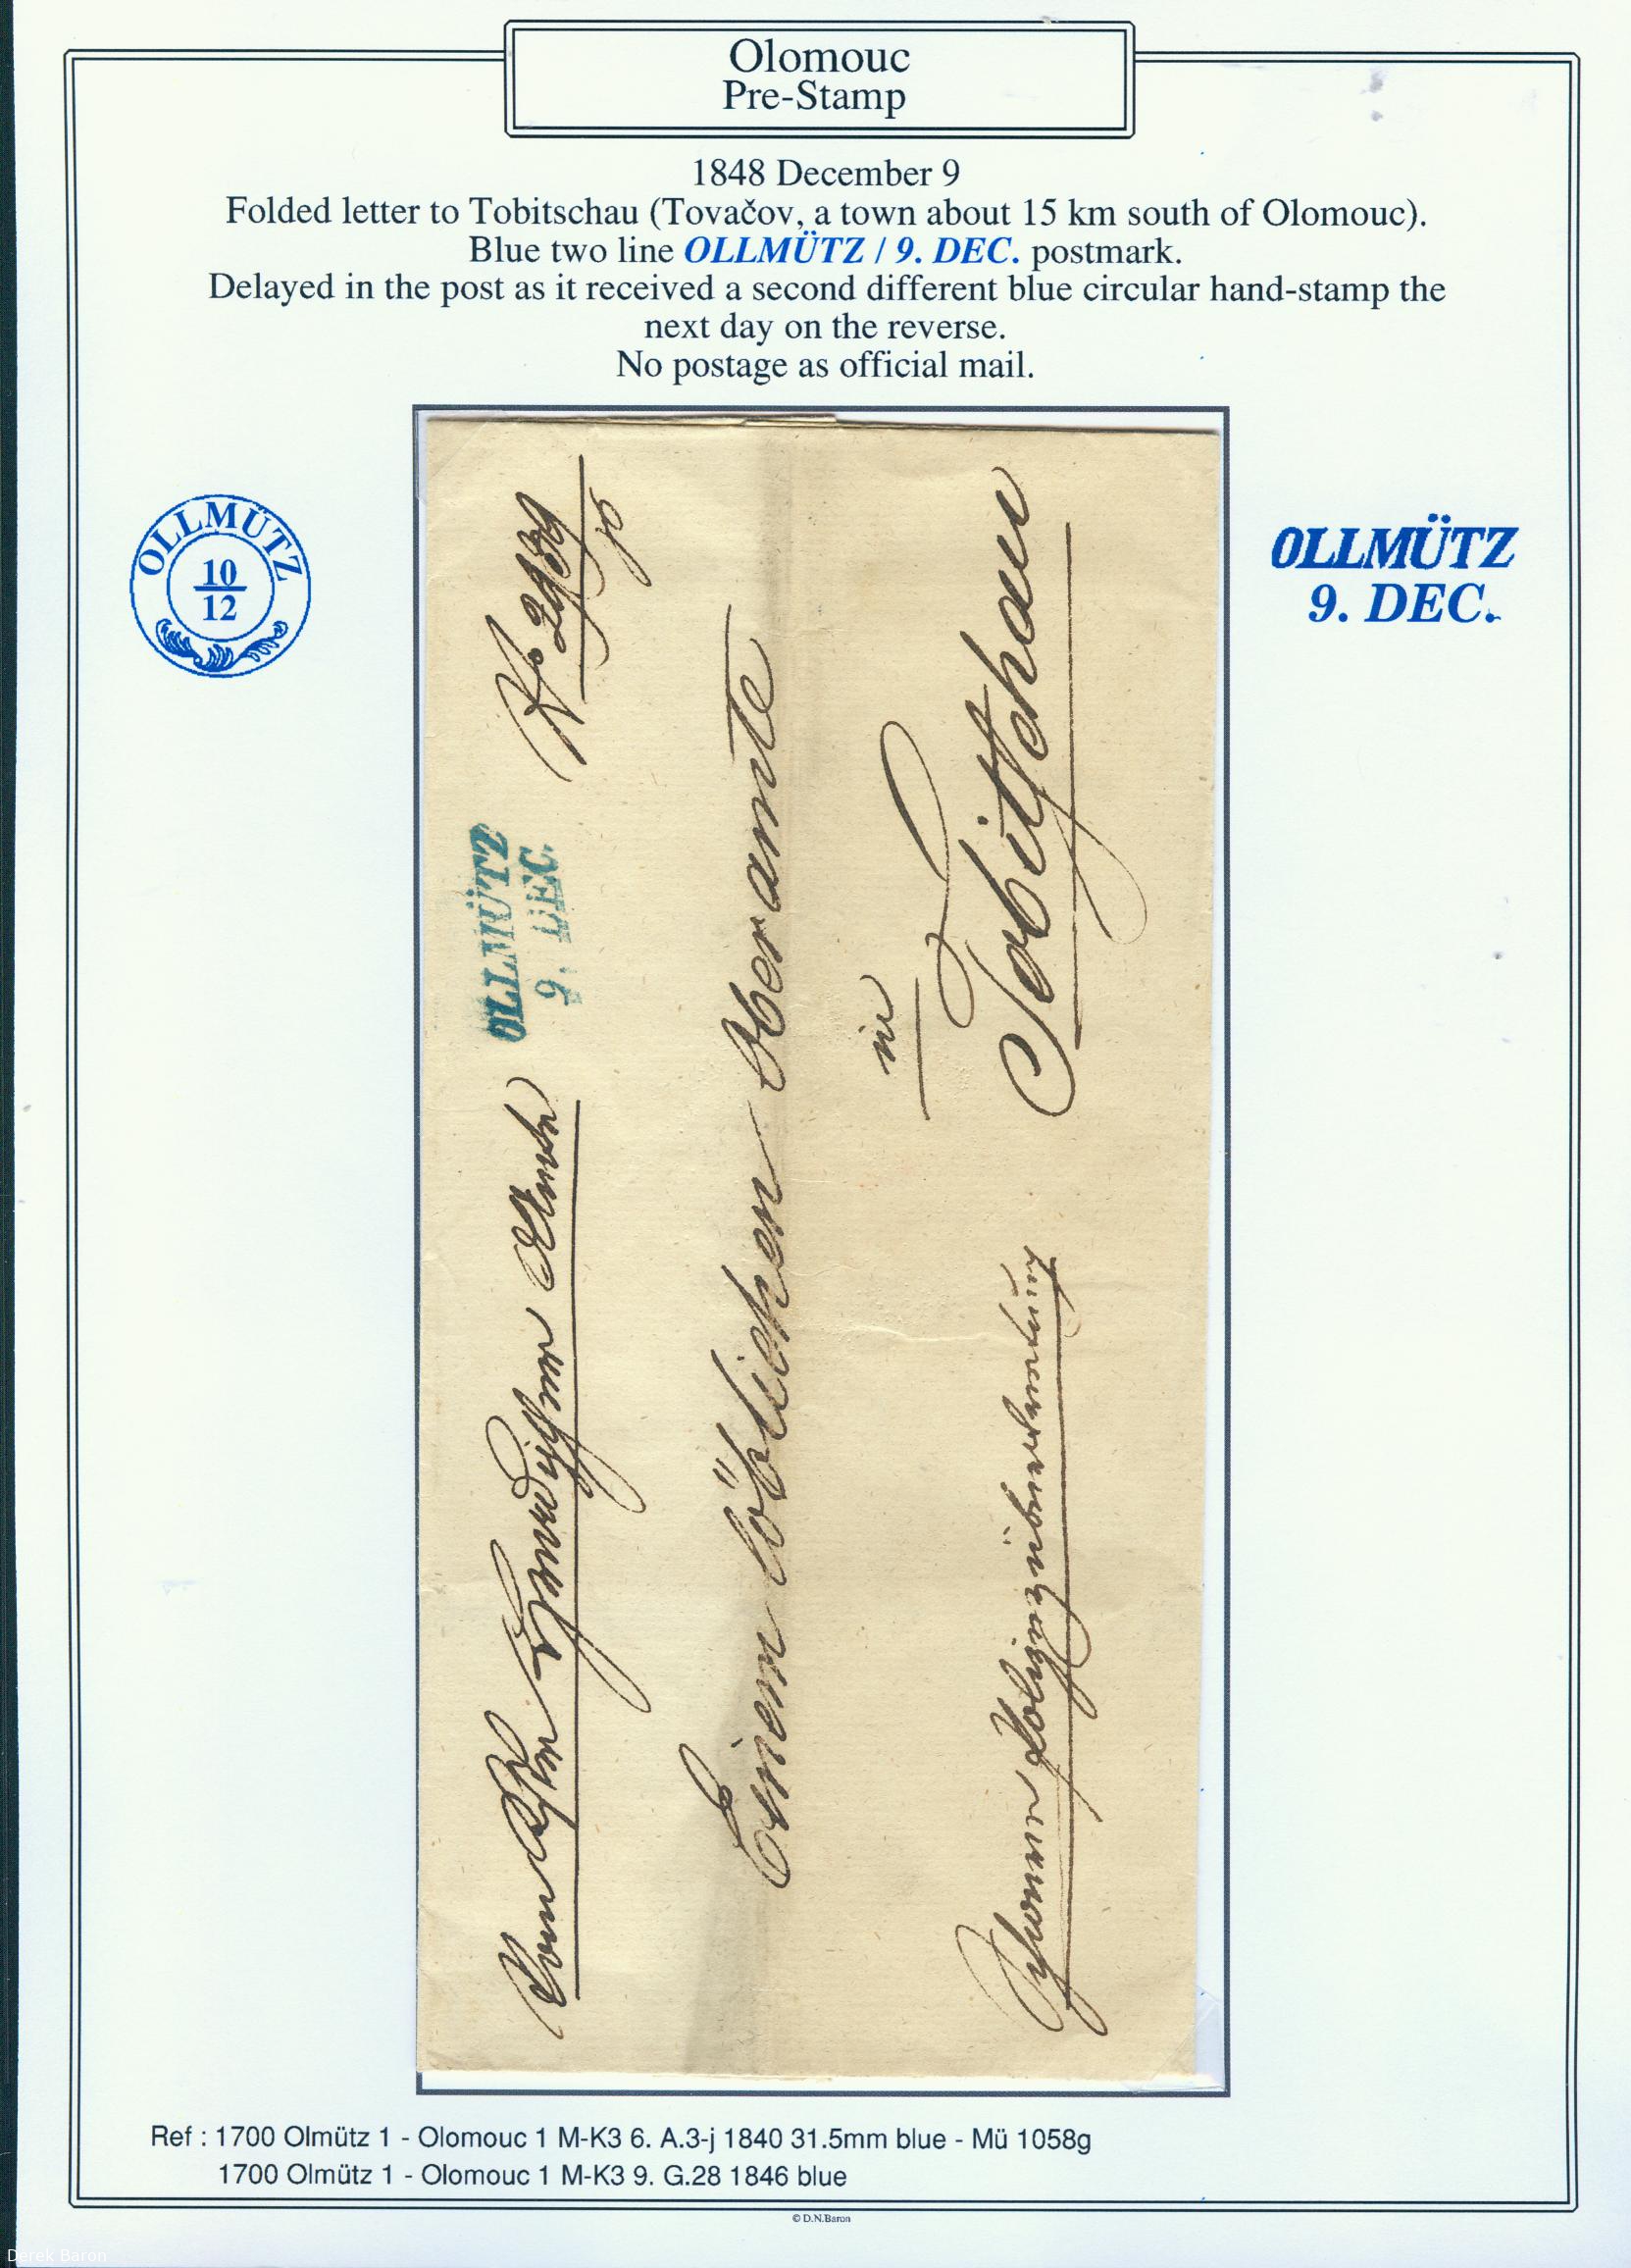 Olomouc
Pre-Stamp
1848 December 9
Folded letter to Tobitschau (Tovačov, a town about 15 km south of Olomouc).
Blue two line OLLMÜTZ / 9. DEC. postmark.
Delayed in the post as it received a second different blue circular hand-stamp the
next day on the reverse.
No postage as official mail.
OLLMÜTZ
10
12
OLLMÜTZ
9. DEC.
OLLMÜTZ
9. DEC.
Einem löblichen Oberamte
in
Tobitschau
Ref : 1700 Olmütz 1 - Olomouc 1 M-K3 6. A.3-j 1840 31.5mm blue - Mü 1058g
1700 Olmütz 1 - Olomouc 1 M-K3 9. G.28 1846 blue
© D.N.Baron
Derek Baron